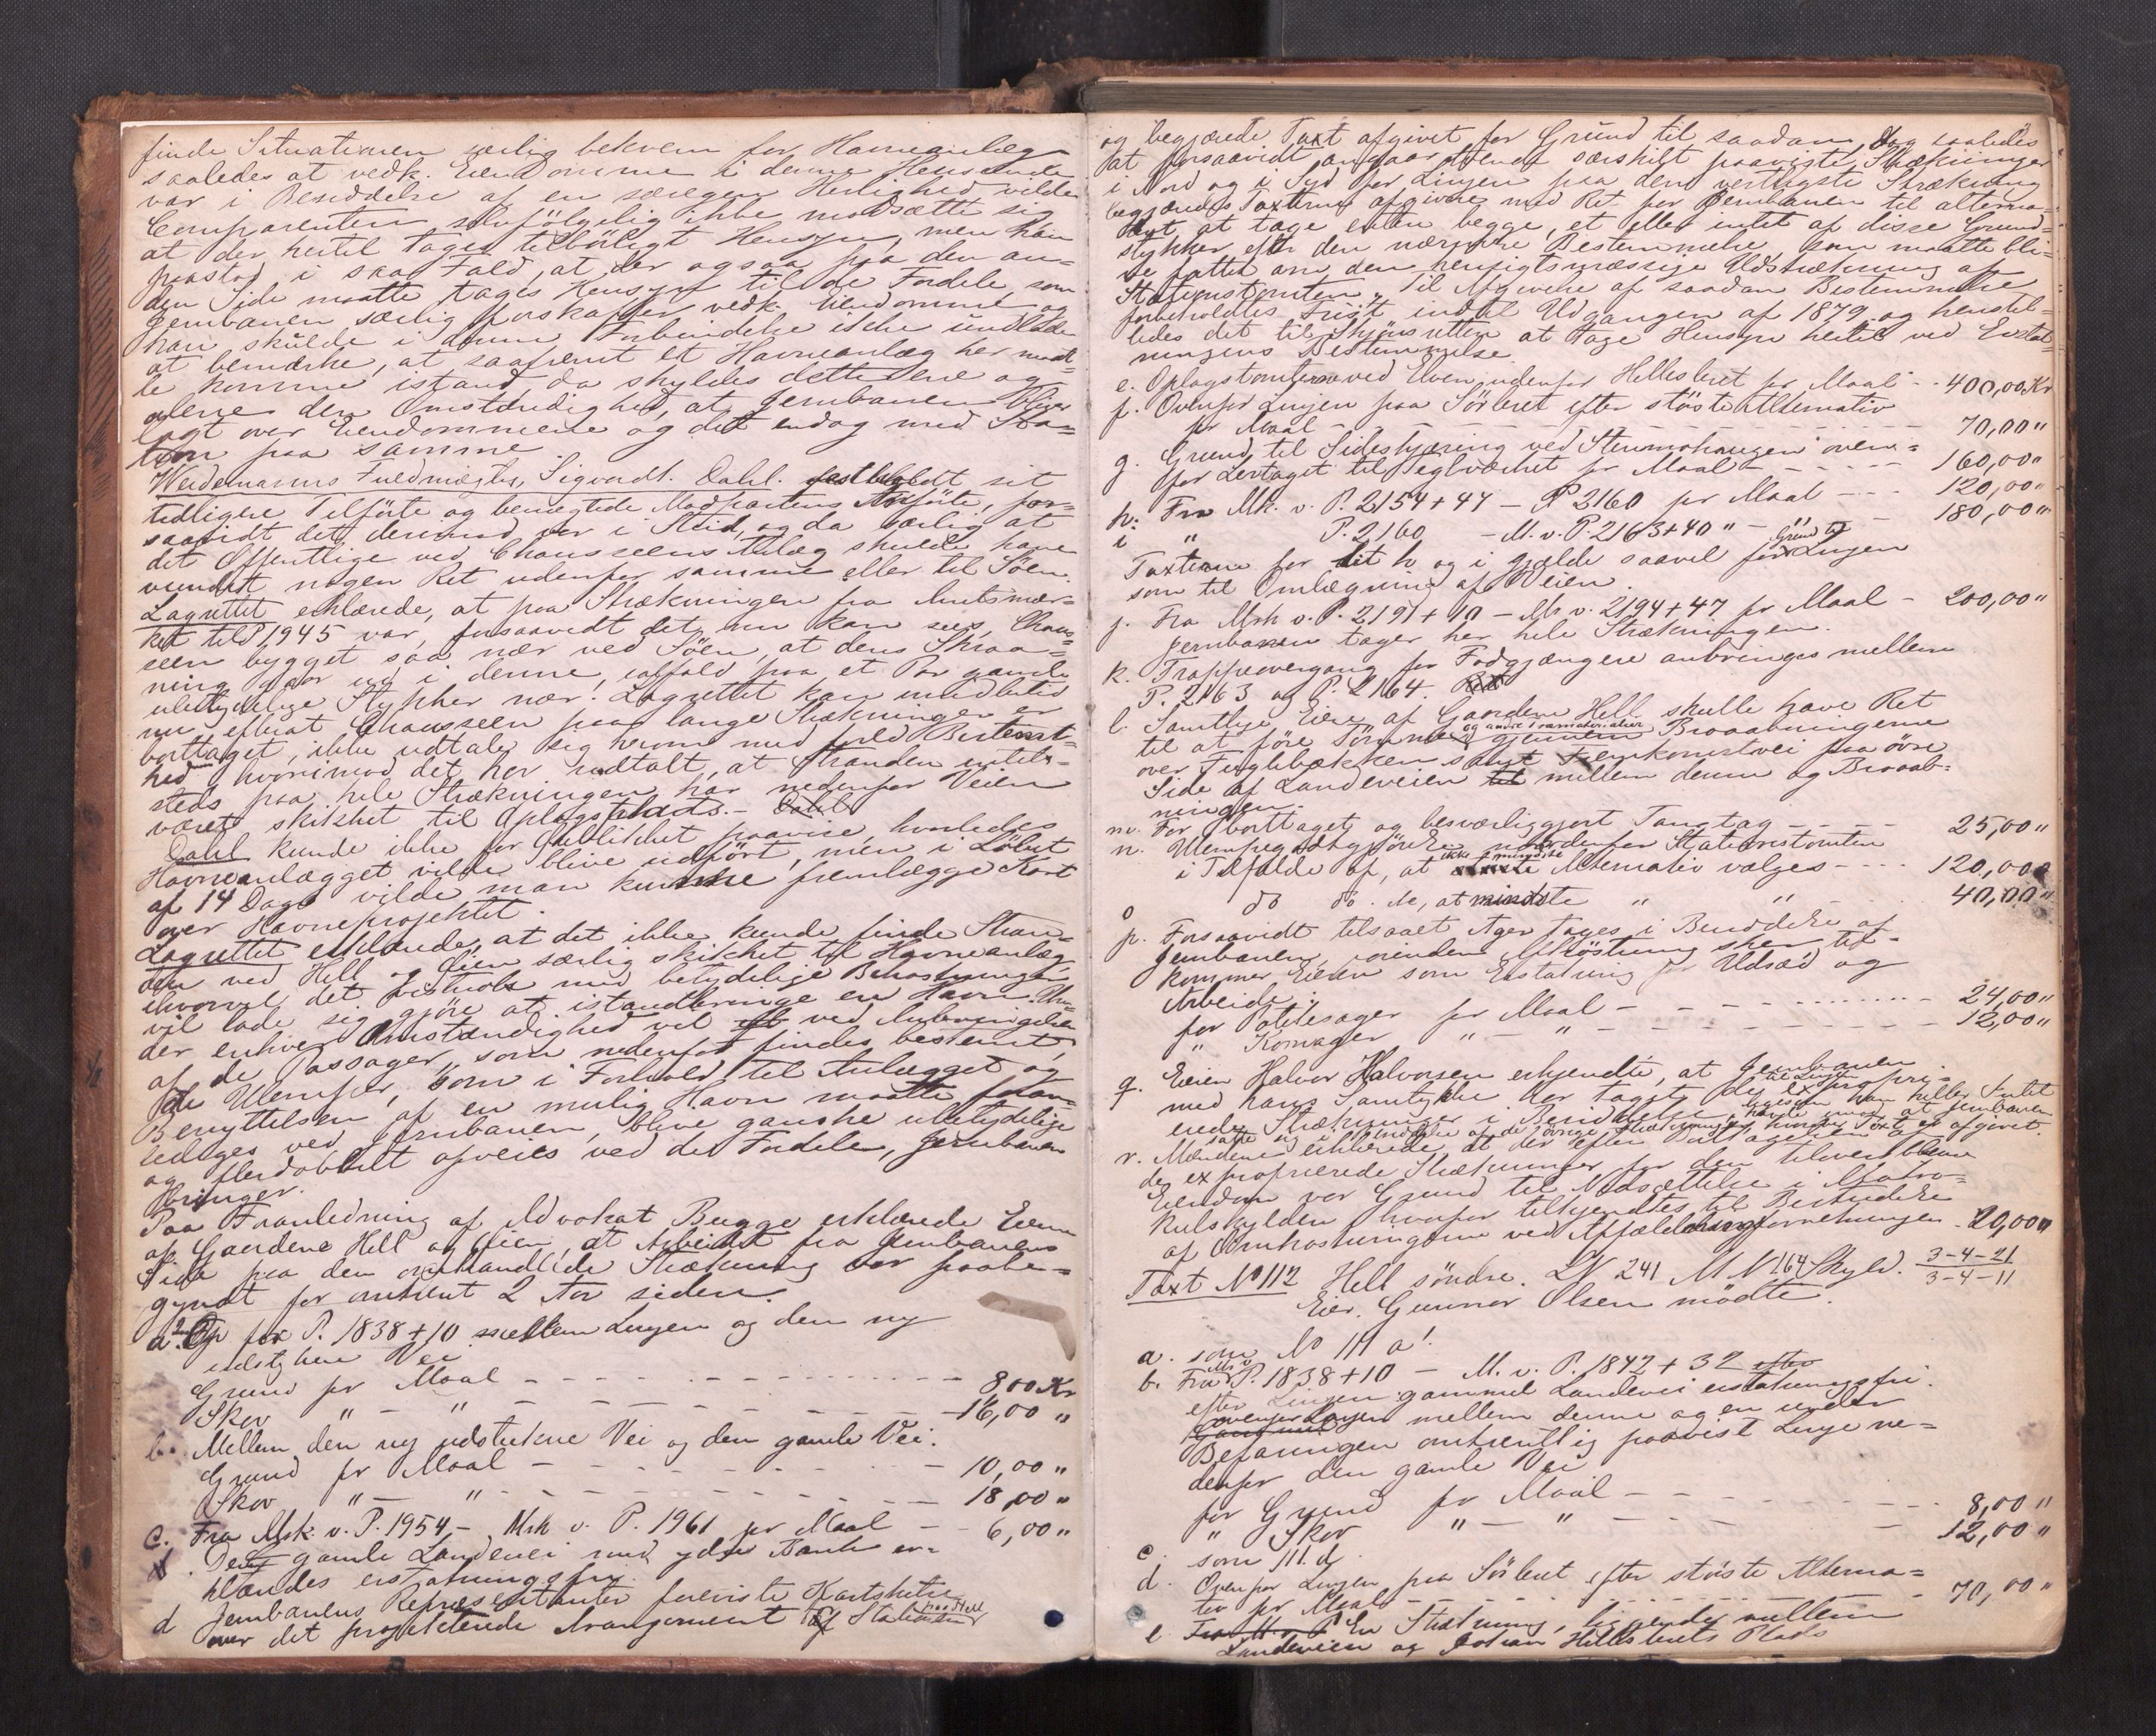 finde Situationen særlig bekvem for Havneanlæg
saaledes at vedk. Eiendomme i denne Henseende
var i Besiddelse af en særegen Herlighed vilde
Comparenten selvfölgelig ikke modsætte sig
at der hertil tages tilbörligt Hensyn, men han
paastod i saa Fald, at der ogsaa paa den an-
den Side maatte tages Hensyn til de Fordele, som
Jernbanen særlig forskaffer vedk. Eiendomme og
han skulde i denne Forbindelse ikke undlade
at bemærke, at saafremt et Havneanlæg her maat-
te komme istand, da skyldes dette ene og
alene den Omstændighed, at Jernbanen bliver
lagt over Eiendommene og det endog med Sta-
tion paa samme.
Weidemanns Fuldmægtig, Sigvardt Dahl. fastholdt sit
tidligere Tilförte og benegtede Modpartens Anförte, for-
saavidt det dermed var i Strid, og da særlig at
det Offentlige ved Chausseens Anlæg skulde have
vundet nogen Ret udenfor samme eller til Söen.
Lagrettet erklærede, at paa Strækningen fra Amtsmær-
ket til P 1945 var, forsaavidt det nu kan sees, Chaus-
seen bygget saa nær ved Söen, at dens Skraa-
ning gaar ud i denne, ialfald paa et Par gamle
ubetydelige Stykker nær. Lagrettet kan imidlertid
nu efterat Chausseen paa lange Strækninger er
borttaget, ikke udtale sig herom med fuld Bestemt-
hed hvorimod det har udtalt, at Stranden intet-
steds paa hele Strækningen har nedenfor Veien
været skikket til Oplagsplads. - Dahl
Dahl kunde ikke for Öieblikket paavise, hvorledes
Havneanlægget vilde blive udfört, men i Löbet
af 14 Dage vilde man kunne fremlægge Kart
over Havneprojektet.
Lagrettet erklærede, at det ikke kunde finde Stran-
den ved Hell og Öien særlig skikket til Havneanlæg,
ihvorvel det vistnok med betydelige Bekostninger
vil lade sig gjöre at istandbringe en Havn. Un-
der enhver Omstændighed vil ved Anbringelsen
af de Passager, som nedenfor findes bestemt,
de Ulemper, som i Forhold til Anlægget og
Benyttelsen af en mulig Havn maatte foraar-
sages ved Jernbanen, blive ganske ubetydelige
og flerdobbelt opveies ved de Fordele, Jernbanen
bringer.
Paa Foranledning af Advokat Bugge erklærede Eierne
af Gaardene Hell og Öien, at Arbeidet fra Jernbanens
Side paa den omhandlede Strækning var paabe-
gyndt for omtrent 2 Aar siden.
a². Op for P. 1838 + 10 mellem Linjen og den ny
udstukne Vei
Grund pr Maal - - - - 8,00 Kr
Skov " - " - - - - 16,00 "
b. Mellem den ny udstukne Vei og den gamle Vei.
Grund pr Maal - - - - 10,00 "
Skov " - " - - - - 18,00 "
c. Fra Mrk. v. P. 1954 - Mrk v. P. 1961 pr Maal - - 6,00 "
d. Den gamle Landevei med ydre Kanter er-
klændes erstatningsfri.
d Jernbanens Repræsentanter foreviste Kartskitse
over det projekterede Arrangement af Stationen paa Hell
og begjærede Taxt afgivet for Grund til saadan, dog saaledes
at forsaavidt angaar tvende særskilt paaviste Strækninger
i Nord og i Syd for Linjen paa den vestligste Strækning
begjæredes Taxterne afgivne med Ret for Jernbanen til alterna-
tivt at tage enten begge, et eller intet af disse Grund-
stykker efter den nærmere Bestemmelse, som maatte bli-
ve fattet om den hensigtsmæssige Udstrækning af
Stationstomten. Til Afgivelse af saadan Bestemmelse
forbeholdtes Frist indtil Udgangen af 1879 og henstil-
ledes det til Skjönsretten at tage Hensyn hertil ved Erstat-
ningens Bestemmelse
e. Oplagstomterne ved Elven udenfor Hellesleret pr Maal - - 400,00 Kr
f. Ovenfor Linjen paa Sörleret efter störste Alternativ
pr Maal - - - - 70,00 "
g. Grund til Sideskjæring ved Steinmohaugen oven-
for Lertaget til Teglværket pr Maal - - - 160,00 "
h. Fra Mk. v. P. 2154 + 47 - P 2160 pr Maal - - - 120,00 "
i " P. 2160 - M. v. P. 2163 + 40 " - " - 180,00 "
Taxterne for Lit h og i gjælde saavel for Grund til Linjen
som til Omlægning af Veien.
j. Fra Mrk v. P. 2191 + 10 - Mk v. 2194 + 47 pr Maal - 200,00 "
Jernbanen tager her hele Strækningen.
k. Trappeovergang for Fodgjængere anbringes mellem
P. 2163 og P. 2164.
l. Samtlige Eiere af Gaardene Hell skulle have Ret
til at före Tömmer og andre Træmaterialier gjennem Broaabningerne
over Fuglebækken samt Fremkomstvei paa övre
Side af Landeveien til mellem denne og Broaab-
ningen.
m. For borttaget og besværliggjort Tangtag - - - 25,00 "
n. Ulempegodtgjörelse nordenfor Stationstomten
i Tilfælde af, at ikke mindste Alternativ vælges - - - 120,00 "
o do do. do, at mindste " " 40,00 "
p. Forsaavidt tilsaaet Ager tages i Besiddelse af
Jernbanen, forinden Afhöstning sker, til-
kommer Eieren som Erstatning for Udsæd og
Arbeide:
for Potetesager pr Maal - - - - 24,00 "
" Kornager " - " - - - - 12,00 "
q. Eieren Halvor Halvorsen erkjendte, at Jernbanen
med hans Samtykke har taget de til Linjen expropri-
erede Strækninger i Besiddelse, ligesom han heller Intet
havde imod at Jernbanen
satte sig i Besiddelse af de övrige Strækninger, hvorover Taxt er afgivet.
r. Mændene erklærede, at der efter Fratagelsen af
de exproprierede Strækninger for den tiloversblevne
Eiendom var Grund til Nedsættelse i Matri-
kulskylden, hvorfor tilkjendtes til Bestridelse
af Omkostningerne ved Affældingsforretningen - 20,00 "
Taxt No 112 Hell söndre. LN 241 M N 164 Skyld. 3-4-21
3-4-11
Eier. Gunnar Olsen mödte.
a. som No 111 a¹.
b. Fra Mk v P. 1838 + 10 - M. v. P. 1842 + 32 efter
efter Linjen gammel Landevei erstatningsfri.
ovenfor Linjen mellem denne og en under
Befaringen omtrentlig paavist Linje ne-
denfor den gamle Vei
for Grund pr Maal - - - - 8,00 "
" Skov " - " - - - - 12,00 "
c. som 111. d.
d. Ovenfor Linjen paa Sörleret efter störste Alterna-
tiv pr Maal - - - - 70,00 "
e Fra M. v. P En Strækning, liggende mellem
Landeveien og Johan Hellsleerets Plads